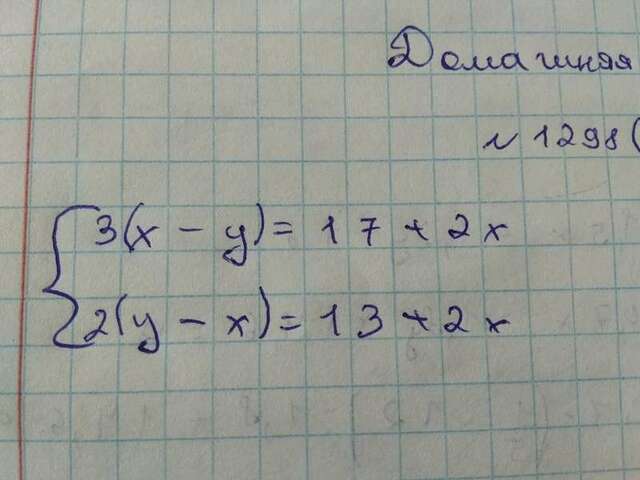 Домашняя
№ 1298(
3(x - y) = 17 + 2x
2(y - x) = 13 + 2x